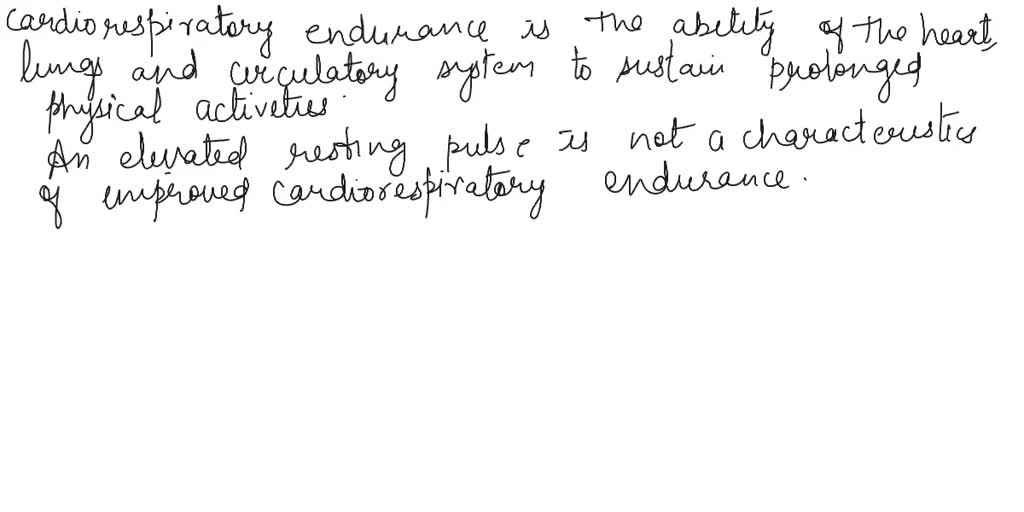 cardiorespiratory endurance is the ability of the heart,
lungs and circulatory system to sustain prolonged
physical activities.
An elevated resting pulse is not a characteristics
of improved cardiorespiratory endurance.